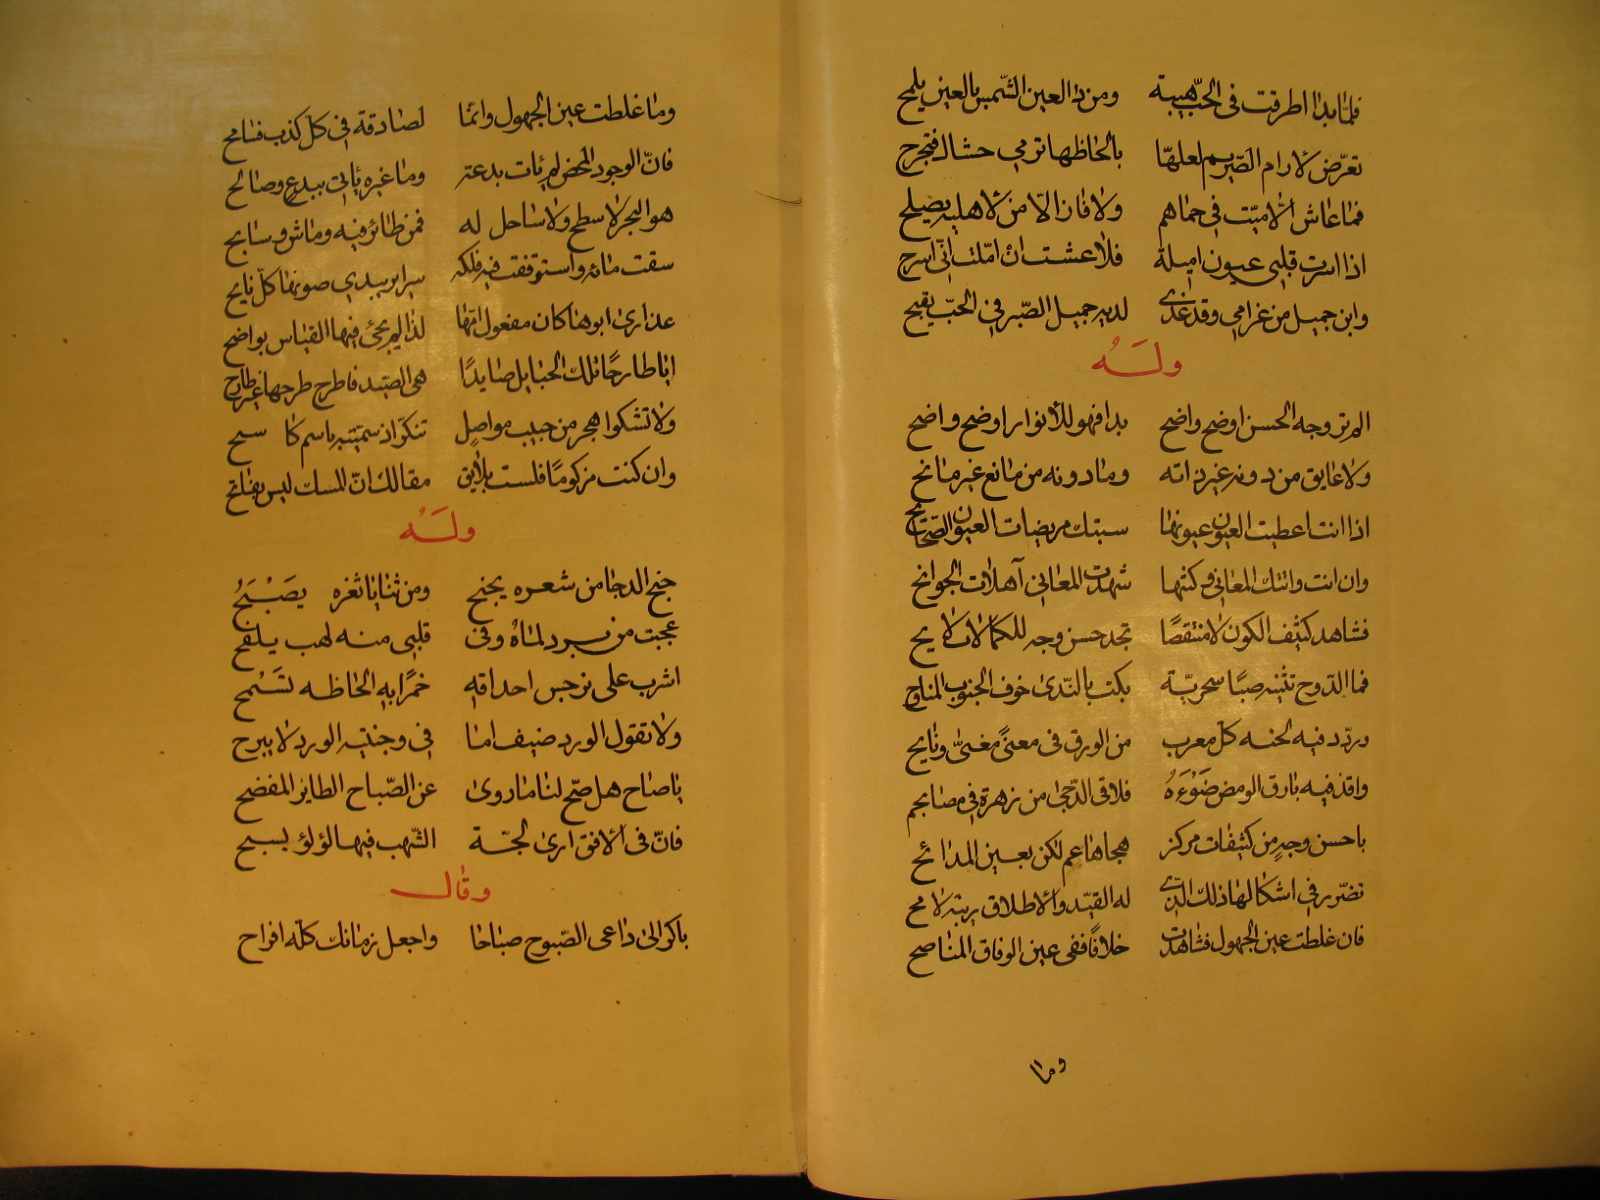 فلمّا بدا اطرقت فى الحبّ هيبة ومن ذا لعين الشّمس بالعين يلمح
تعرّض لارام الصّريم لعلهّا بالحاظها ترمي حشاك فتجرح
فما عاش الّا ميّت في حماهم ولا فاز الّا من لاهليه يصلح
اذا اسرت قلبي عيون اميلة فلا عشت ان امّلت انّى اسرح
واين جميل من غرامي وقد غدى لديه جميل الصّبر في الحبّ يقبح
ولـه
الم تر وجه الحسن اوضح واضح بدا فهو للأنوار اوضح واضح
ولا عايق من دونه غير ذاته وما دونه من مانع غير مانح
اذا انت اعطيت العيون عيونها سبتك مريضات العيون الصّحائح
وان انت واتتك المعاني وكنتها شهدت المعاني آهلات الجوانح
فشاهد كثيف الكون لا منتقصًا تجد حسن وجه للكمالات لايح
فما الدّوح تثنيه صبًا سحريّة بكت بالنّدى خوف الجنوب المناوح
وردّد فيه لحنه كلّ معرب من الورق فى معنىً مغنىّ ونايح
واقذ فيه بارق الومض ضوءه فلاقى الدّجى من زهرة في مصابح
باحسن وجهٍ من كثيفات مركز هجاها عم لكن بعين المدائح
تضرّر في اشكالها ذلك الذّي له القيد والاطلاق ربته لامح
فان غلطت عين الجهول فشاهدت خلافًا ففى عين الوفاق المناصح
وما
وما غلطت عين الجهول وانّما لصادقة فى كلّ كذب فسامح
فانّ الوجود المحض لم يأت بدعة وما غيره يأتي ببدعٍ وصالح
هو البحر لا سطح ولا ساحل له فمن طائر فيه وماش وسابح
سقت مائه واستوقفت فيه فلكه سراير يبدي صونها كلّ نايح
عذارى ابوها كان مفعول امّها لذا لم يجئ فيها القياس بواضح
ايا طارحًا تلك الحبايل صايدًا هى الصّيد فاطرح طرحها غير طارح
ولا تشكوا هجر من حبيب مواصلٍ تنكّر اذ سمّيته باسم كاسح
وان كنت مزكومًا فلست بلايق مقالك انّ المسك ليس بفايح
ولـه
جنح الدجا من شعره يجنح ومن ثنايا ثغره يصبح
عجبت من برد لماهُ وفى قلبى منه لهب يلفح
اشرب على نرجس احداقه خمرًا به الحاظه تسمح
ولا تقول الورد ضيف اما في وجنتيه الورد لا يبرح
يا صاح هل صحّ لنا ما روى عن الصّباح الطاير المفصح
فانّ فى الافق ارى لجّة الشّهب فيها لؤلؤ يسبح
وقال
باكر الى داعى الصّبوح صباحا واجعل زمانك كلّه افراح